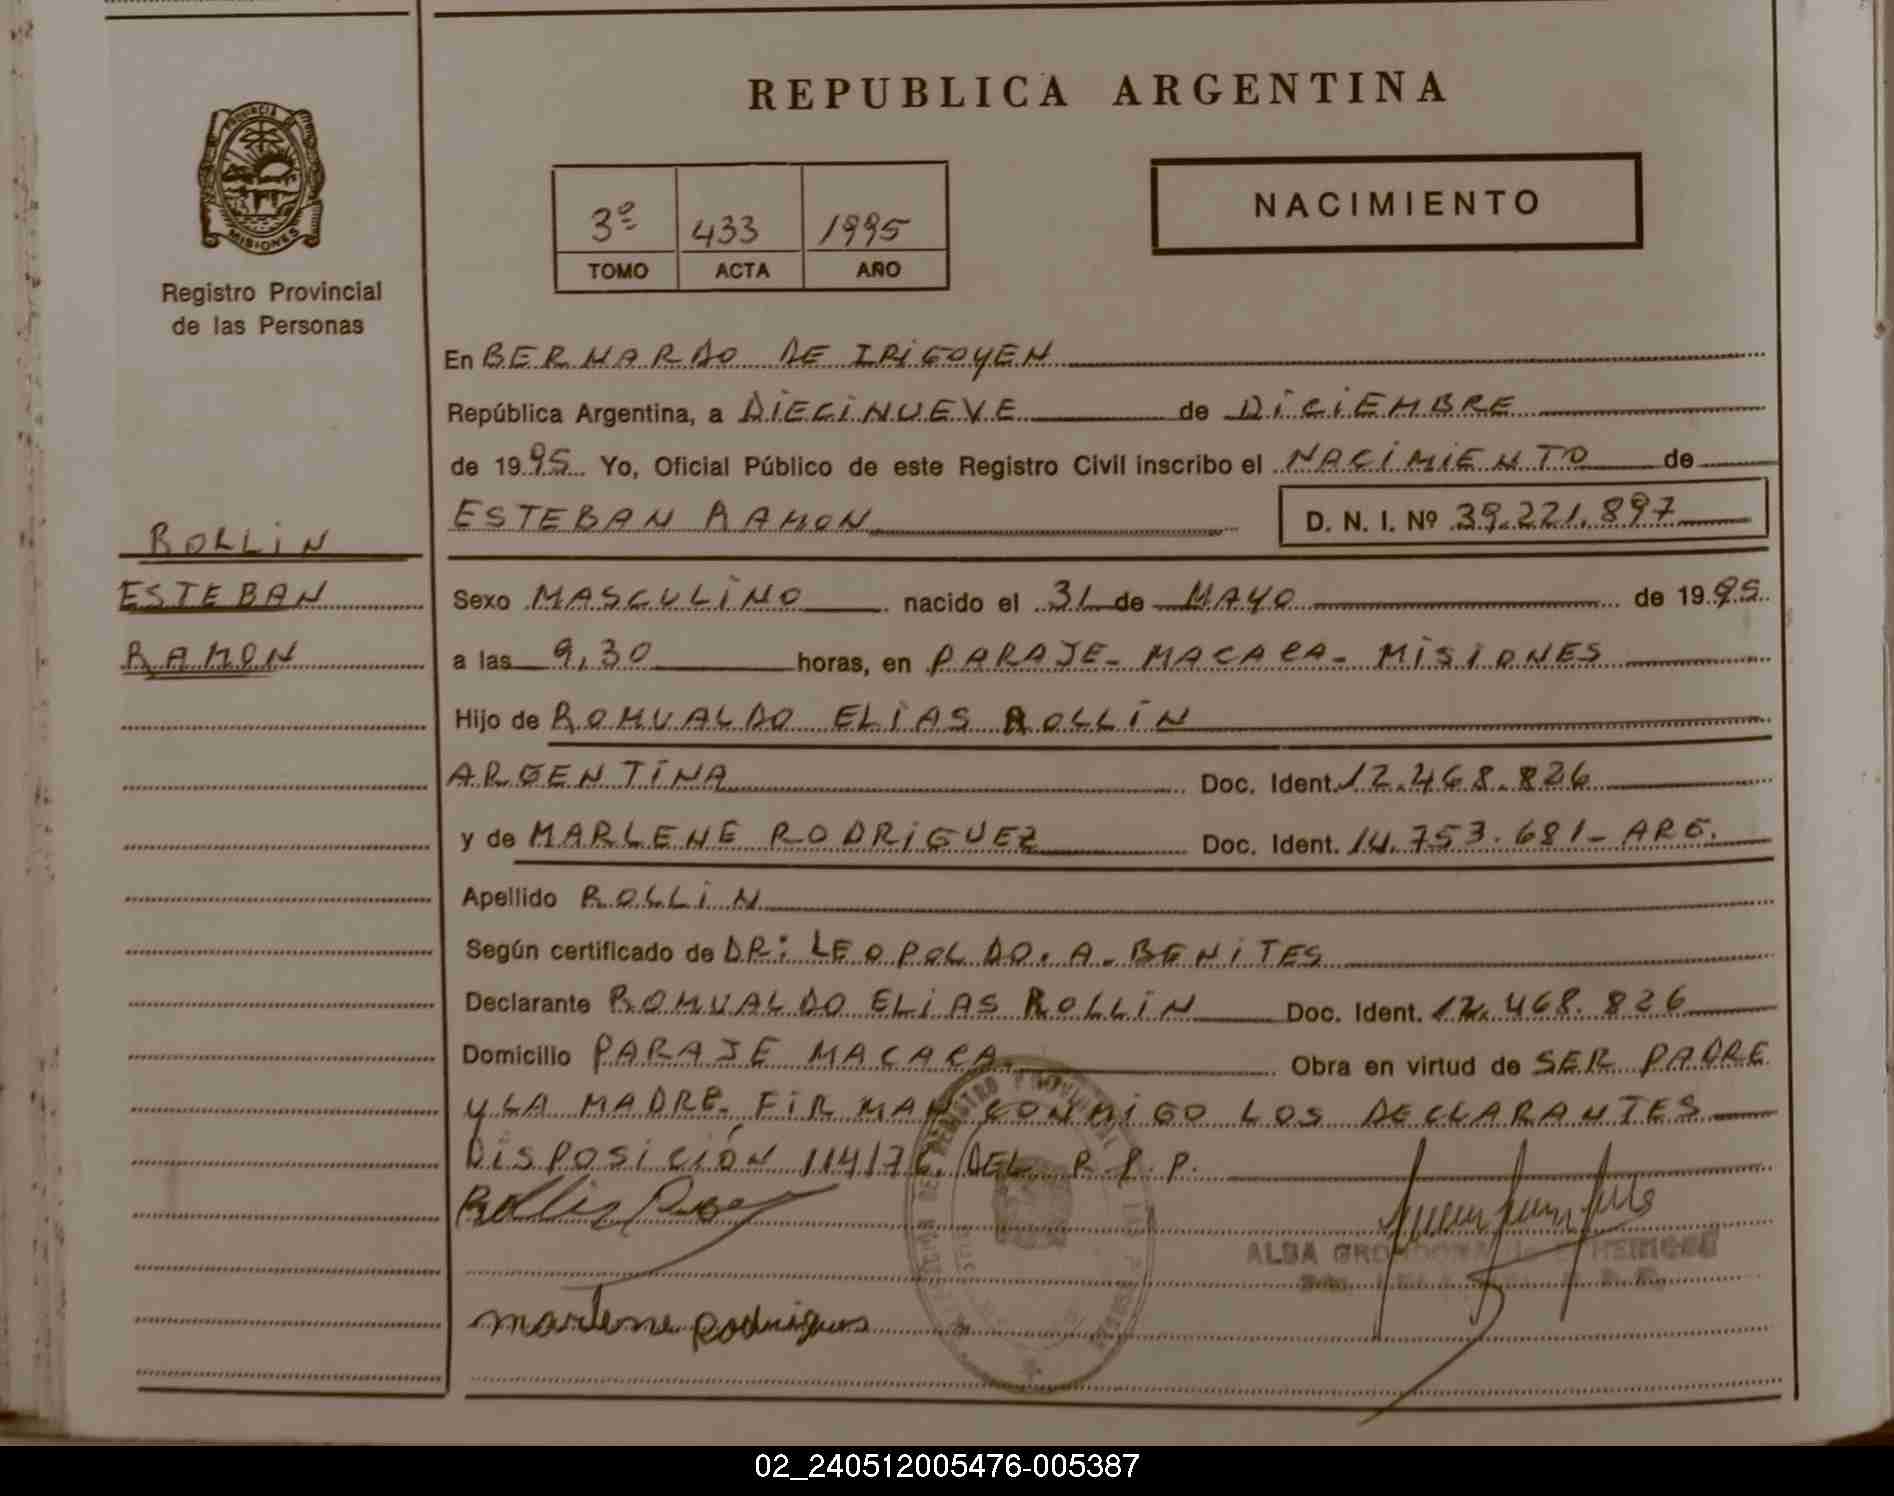 REPUBLICA ARGENTINA
PROVINCIA DE
MISIONES
Registro Provincial
de las Personas
3º 433 1995
TOMO ACTA AÑO
NACIMIENTO
En BERNARDO DE IRIGOYEN
República Argentina, a DIECINUEVE de DICIEMBRE
de 1995 Yo, Oficial Público de este Registro Civil inscribo el NACIMIENTO de
ESTEBAN RAMON D. N. I. Nº 39.221.897
ROLLIN
ESTEBAN
RAMON
Sexo MASCULINO nacido el 31 de MAYO de 1995
a las 9,30 horas, en PARAJE- MACACA- MISIONES
Hijo de ROMUALDO ELIAS ROLLIN
ARGENTINA Doc. Ident. 12.468.826
y de MARLENE RODRIGUEZ Doc. Ident. 14.753.681- ARG.
Apellido ROLLIN
Según certificado de DR: LEOPOLDO. A. BENITES
Declarante ROMUALDO ELIAS ROLLIN Doc. Ident. 12.468.826
Domicilio PARAJE MACACA. Obra en virtud de SER PADRE
y LA MADRE. FIRMAN CONMIGO LOS DECLARANTES
DISPOSICIÓN 114/76. DEL R.P.P.
Rollin
ALBA
marlene rodrigues
02_240512005476-005387